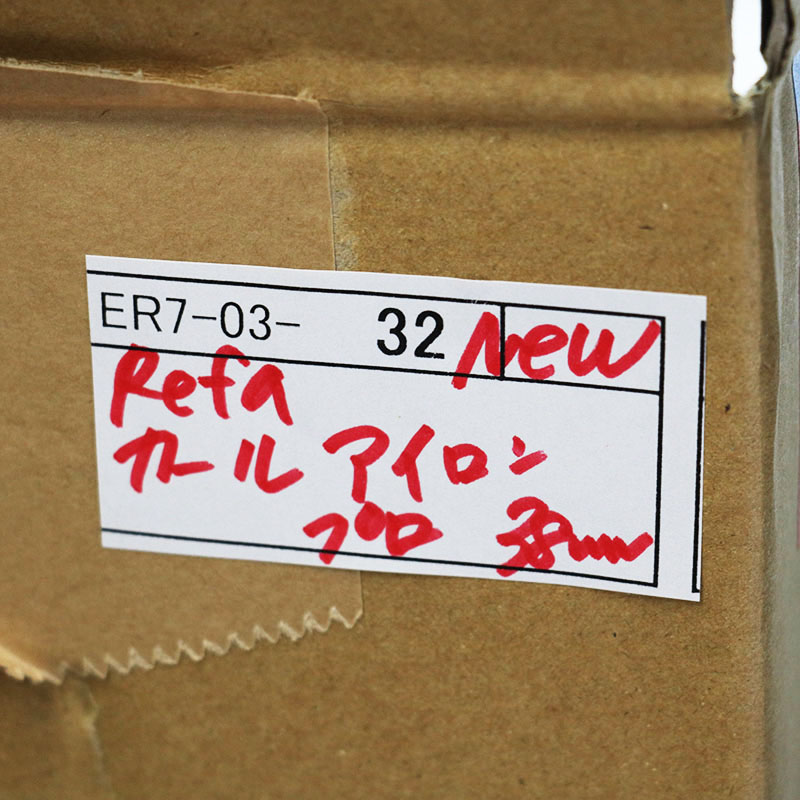 ER7-03- 32 New
Refa
カール アイロン
プロ 38mm